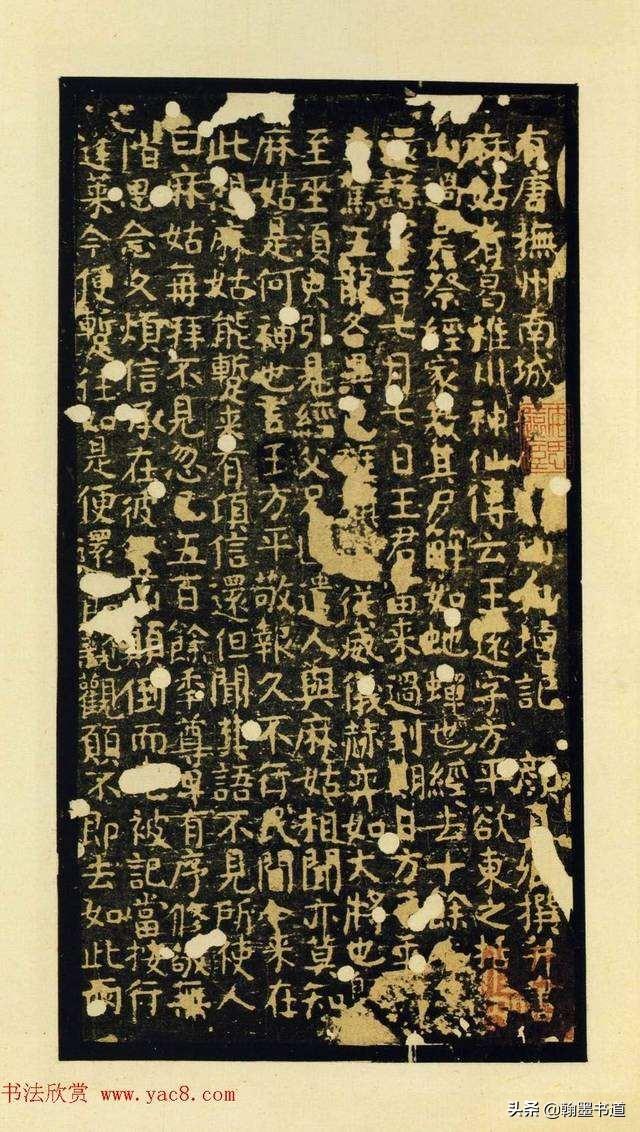 有唐撫州南城山仙壇記 顏真卿撰并書
麻姑者葛稚川神仙傳云王遠字方平欲東之括
山過吳蔡經家教其尸解如虵蟬也經去十餘
還語家言七月七日王君當来過到期日方平乘
駕五龍各異色旌從威儀赫弈如大將也
至坐須臾引見經父兄遣人與麻姑相聞亦莫知
麻姑是何神也言王方平敬報久不行民間今来在
此想麻姑能蹔来有頃信還但聞其語不見所使人
曰麻姑再拜不見忽已五百餘秊尊卑有序修敬無
階思念久煩信承在彼顛倒而先被記當按行
蓬萊今便蹔往如是便還即親觀願不即去如此兩
书法欣赏 www.yac8.com
头条 @翰墨书道